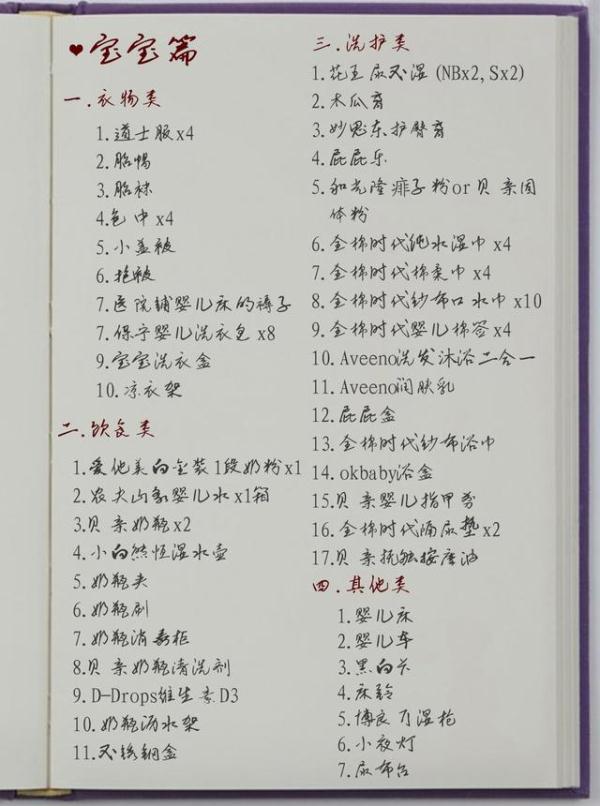 ♥宝宝篇
一.衣物类
1.道士服x4
2.胎帽
3.胎袜
4.包巾x4
5.小盖被
6.抱被
7.医院铺婴儿床的褥子
7.保宁婴儿洗衣皂x8
9.宝宝洗衣盆
10.凉衣架
二.饮食类
1.爱他美白金装1段奶粉x1
2.农夫山泉婴儿水x1箱
3.贝亲奶瓶x2
4.小白熊恒温水壶
5.奶瓶夹
6.奶瓶刷
7.奶瓶消毒柜
8.贝亲奶瓶清洗剂
9.D-Drops维生素D3
10.奶瓶沥水架
11.不锈钢盆
三.洗护类
1.花王尿不湿(NBx2,Sx2)
2.木瓜膏
3.妙思乐护臀膏
4.屁屁乐
5.和光隆痱子粉or贝亲固
体粉
6.全棉时代纯水湿巾x4
7.全棉时代棉柔巾x4
8.全棉时代纱布口水巾x10
9.全棉时代婴儿棉签x4
10.Aveeno洗发沐浴二合一
11.Aveeno润肤乳
12.屁屁盆
13.全棉时代纱布浴巾
14.okbaby浴盆
15.贝亲婴儿指甲剪
16.全棉时代隔尿垫x2
17.贝亲抚触按摩油
四.其他类
1.婴儿床
2.婴儿车
3.黑白卡
4.床铃
5.博良耳温枪
6.小夜灯
7.尿布台